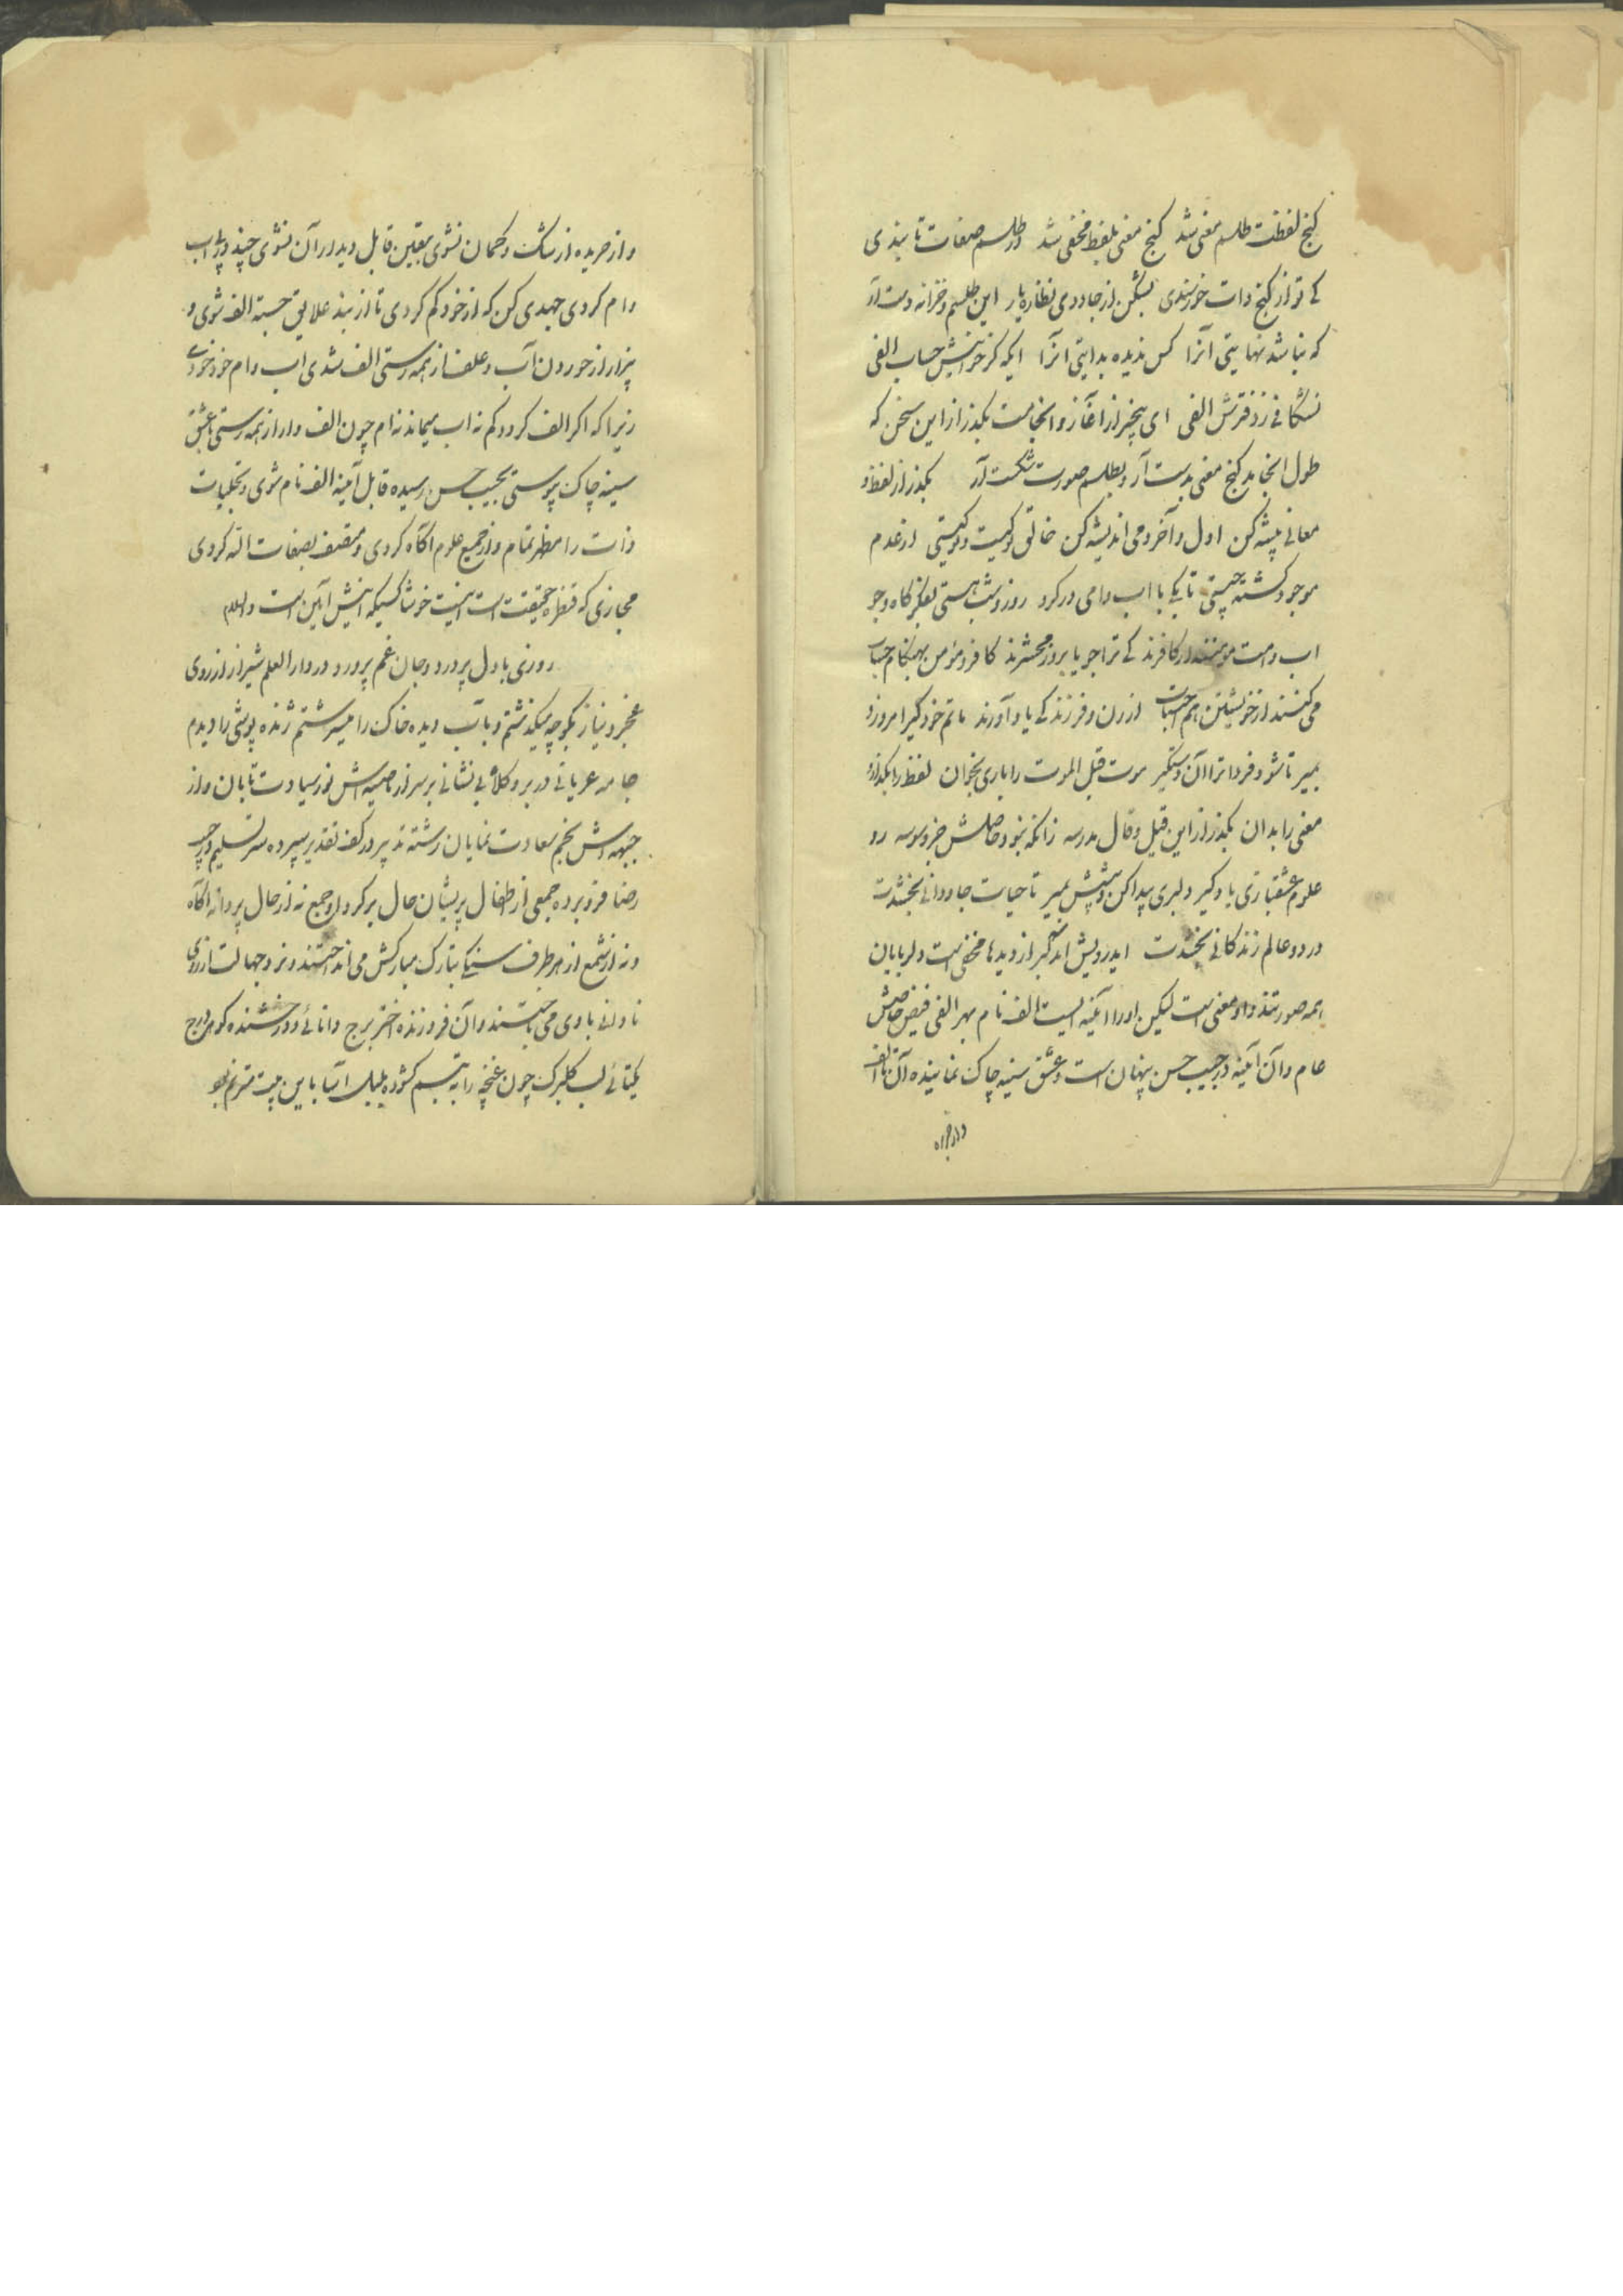 گنج لفظت طلسم معنی شد گنج معنی بلفظ مخفی شد در طلسم صفات تا بندی
کے تو از گنج ذات خرسندی بشکن از جادوی نظاره یار این طلسم و خزانه دست آر
که نباشد نهایتی آنرا کس ندیده بدایتی آنرا ایکه کز خویش حساب الفی
ای بیخبر از آغاز و انجامت بکذر از این سخن که
طول انجامد گنج معنی بدست آر و بطلسم صورت شکست آر بکذر از لفظ و
معانی پیشه کن اول و آخر دمی اندیشه کن خالق تو کیست و تو کیستی از عدم
موجود گشته چیستی تا بکی با اب و امی در کرو روز و شب هستی بفکر کاه و جو
اب و امت مومنند ار کافرند کے ترا جویا بروز محشرند کافر و مؤمن بهنگام حساب
می کنند از خویشتن هم اجتناب از زن و فرزند کے یاد آورند ماتم خود گیر امروز و
بمیر تا شود فردا ترا آن دستگیر موت قبل الموت را باری بخوان لفظ را بگذار و
معنی را بدان بکذر از این قیل و قال مدرسه زانکه نبود حاصلش جز وسوسه رو
علوم عشقبازی یاد گیر دلبری پیدا کن و پیشش بمیر تا حیات جاودانی بخشدت
در دو عالم زندگانی بخشدت ایدرویش اگر از دیدها مخفی است دلربایان
همه صورتند و او معنی است لیکن او را آئینه ایست الف نام بهر الفی فیض خاصش
عام و آن آئینه در جیب حسن پنهان است و عشق سینه چاک نماینده آن تا الف
و از خریده از شک و گمان نشوی بیقین قابل دیدار آن نشوی چند در پی اب
و ام کردی جهدی کن که از خود گم کردی تا از بند علایق جسته الف شوی و
بیزار از خوردن آب و علف از همه رستی الف شدی اب و ام خود خودے
زیرا که اکر الف کردد کم نه اب میماند نه ام چون الف وار از همه رستی با عشق
سینه چاک پیوستی بجیب حسن رسیده قابل آئینه الف نام شوی و تجلیات
ذات را مظهر تمام و از جمیع علوم آگاه کردی و متصف بصفات اله کردی
مجازی که قنطره حقیقت است اینست خوشا کسیکه اینش آیین است والسلام
روزی با دل پر درد و جان غم پرورد در دار العلم شیراز از روی
عجز و نیاز بکوچه میگذشتم و بآب دیده خاک را میسرشتم ژنده پوشی را دیدم
جامه عریانی در بر و کلاه بی نشانی بر سر از ناصیه اش نور سیادت تابان و از
جبهه اش نجم سعادت نمایان رشته تدبیر در کف تقدیر سپرده سر تسلیم در جیب
رضا فرو برده جمعی از اطفال پریشان حال بر کرد او جمع نه از حال پروانه آگاه
و نه از شمع از هر طرف سنگ بتارک مبارکش می انداختند و نرد جهالت از روی
نادانی با وی می باختند و آن فروزنده اختر برج دانائی و درخشنده گوهر درج
یکتائی لب گلبرک چون غنچه را به تبسم گشوده بلبل آسا باین بیت مترنم بود